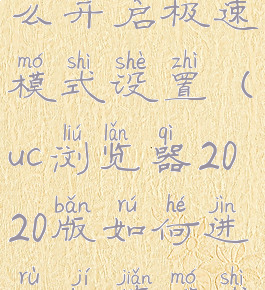 么开启极速
mó shì shè zhì
模式设置(
liú lǎn qì
uc浏览器20
bǎn rú hé jìn
20版如何进
rù jí jiǎn mó shì